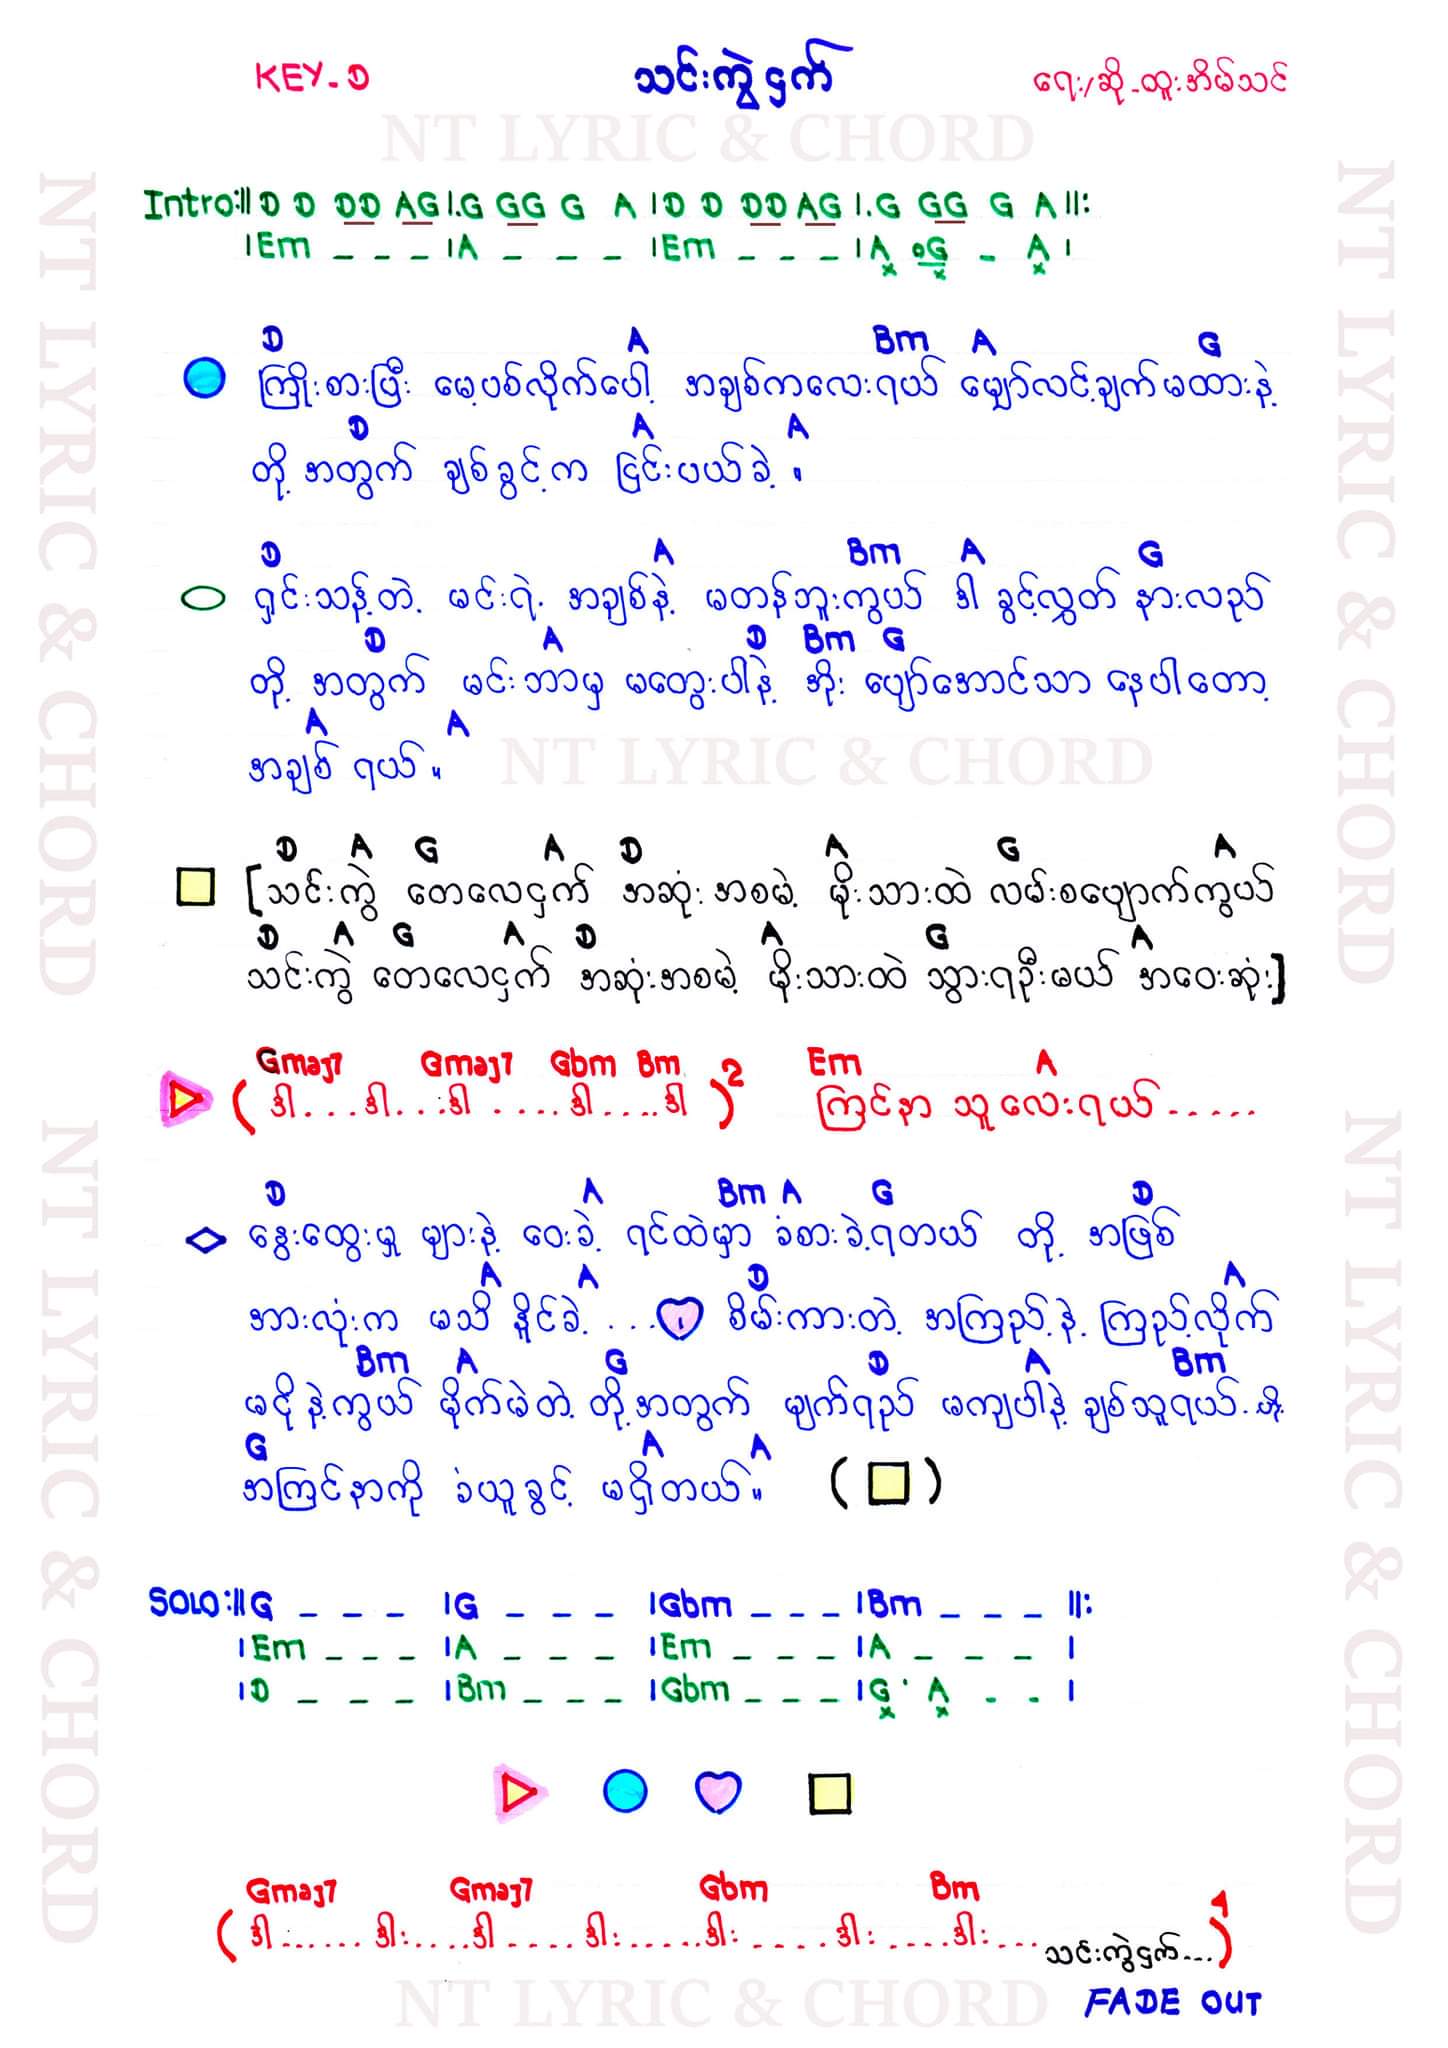 KEY-D သင်းကွဲငှက် ရေး/ဆို-ထူးအိမ်သင်
NT LYRIC & CHORD
Intro:|| D D DD AG |.G GG G A | D D DD AG |.G GG G A ||:
| Em _ _ _ | A _ _ _ | Em _ _ _ | A G _ A |
D A Bm A G
ကြိုးစားပြီး မေ့ပစ်လိုက်ပေါ့ အချစ်ကလေးရယ် မျှော်လင့်ချက်မထားနဲ့
D A A
တို့အတွက် ချစ်ခွင့်က ငြင်းပယ်ခဲ့ ။
D A Bm A G
ရှင်းသန့်တဲ့ မင်းရဲ့ အချစ်နဲ့ မတန်ဘူးကွယ် ဒါ ခွင့်လွှတ် နားလည်
D A D Bm G
တို့ အတွက် မင်းဘာမှ မတွေးပါနဲ့ အိုး ပျော်အောင်သာ နေပါတော့
A A
အချစ် ရယ် ။
NT LYRIC & CHORD
D A G A D A G A
[သင်းကွဲ တေလေငှက် အဆုံးအစမဲ့ မိုးသားထဲ လမ်းစပျောက်ကွယ်
D A G A D A G A
သင်းကွဲ တေလေငှက် အဆုံးအစမဲ့ မိုးသားထဲ သွားရဦးမယ် အဝေးဆုံး]
Gmaj7 Gmaj7 Gbm Bm Em A
( ဒါ...ဒါ...ဒါ....ဒါ....ဒါ )2 ကြင်နာ သူလေးရယ်......
D A Bm A G D
နွေးထွေးမှု များနဲ့ ဝေးခဲ့ ရင်ထဲမှာ ခံစားခဲ့ရတယ် တို့ အဖြစ်
A A D A
အားလုံးက မသိ နိူင်ခဲ့... စိမ်းကားတဲ့ အကြည့်နဲ့ ကြည့်လိုက်
Bm A G D A Bm
မငိုနဲ့ကွယ် မိုက်မဲတဲ့ တို့အတွက် မျက်ရည် မကျပါနဲ့ ချစ်သူရယ်..
G A A
အကြင်နာကို ခံယူခွင့် မရှိတယ် ။ ( )
SOLO:|| G _ _ _ | G _ _ _ | Gbm _ _ _ | Bm _ _ _ ||:
| Em _ _ _ | A _ _ _ | Em _ _ _ | A _ _ _ |
| D _ _ _ | Bm _ _ _ | Gbm _ _ _ | G · A _ _ |
Gmaj7 Gmaj7 Gbm Bm
( ဒါ......ဒါး....ဒါ....ဒါး.....ဒါး....ဒါး....ဒါး... သင်းကွဲငှက်...)4
NT LYRIC & CHORD
FADE OUT
NT LYRIC & CHORD
NT LYRIC & CHORD
NT LYRIC & CHORD
NT LYRIC & CHORD